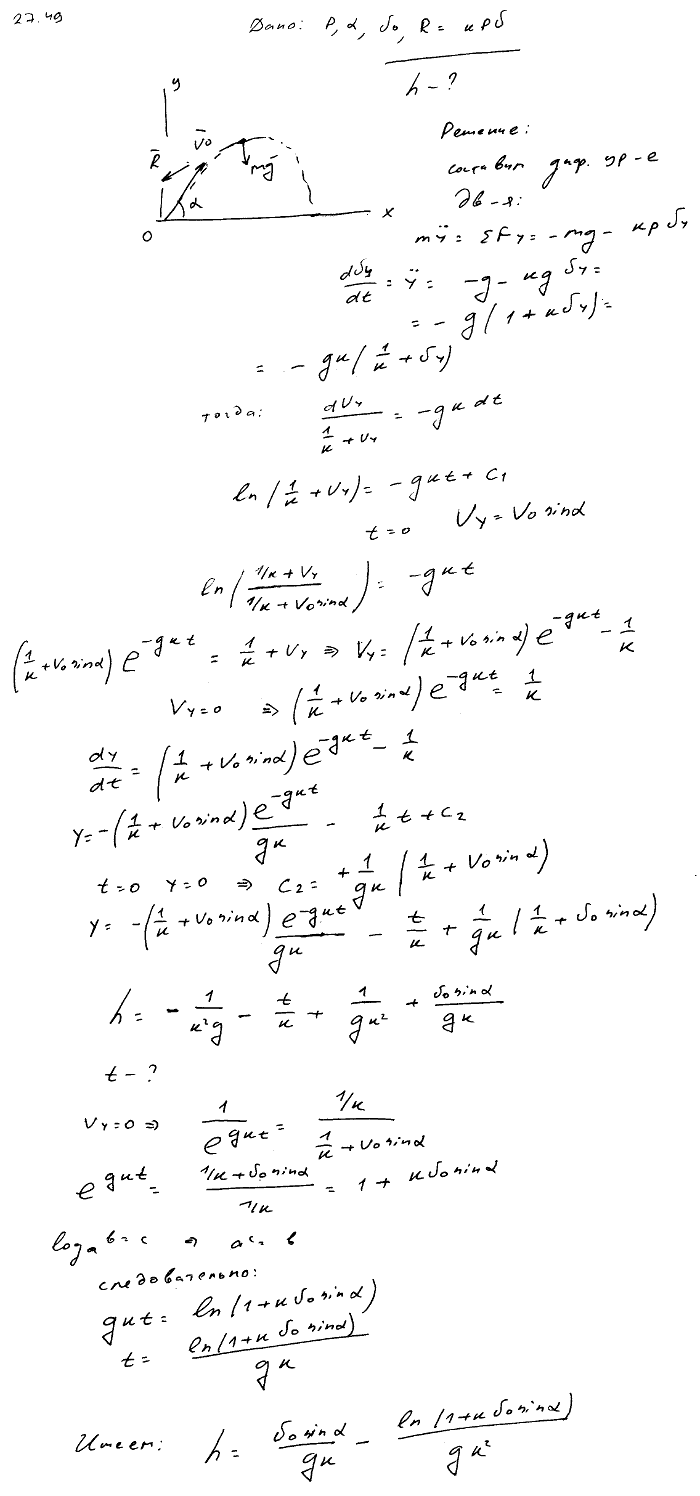 27.49
Дано: P, α, v₀, R = кPv
h - ?
y
R̄ v̄₀ mḡ
α
0 x
Решение:
составим диф. ур-е
дв-я:
mÿ = ΣFy = -mg - кp vy
dvy/dt = ÿ = -g - кg vy =
= - g(1 + к vy) =
= - gк(1/к + vy)
тогда: dVy/(1/к + Vy) = -gк dt
ln(1/к + Vy) = -gкt + C₁
t=0 Vy = V₀ sinα
ln((1/к + Vy)/(1/к + V₀ sinα)) = -gкt
(1/к + V₀ sinα) e^(-gкt) = 1/к + Vy ⇒ Vy = (1/к + V₀ sinα) e^(-gкt) - 1/к
Vy=0 ⇒ (1/к + V₀ sinα) e^(-gкt) = 1/к
dy/dt = (1/к + V₀ sinα) e^(-gкt) - 1/к
y = -(1/к + V₀ sinα) e^(-gкt)/gк - 1/к t + C₂
t=0 y=0 ⇒ C₂ = +1/gк (1/к + V₀ sinα)
y = -(1/к + V₀ sinα) e^(-gкt)/gк - t/к + 1/gк (1/к + v₀ sinα)
h = - 1/к²g - t/к + 1/gк² + v₀ sinα/gк
t - ?
Vy=0 ⇒ 1/e^(gкt) = (1/к)/(1/к + V₀ sinα)
e^(gкt) = (1/к + v₀ sinα)/(1/к) = 1 + кv₀ sinα
logₐ b = c ⇒ aᶜ = b
следовательно:
gкt = ln(1+к v₀ sinα)
t = ln(1+к v₀ sinα)/gк
Имеем: h = v₀ sinα/gк - ln(1+к v₀ sinα)/gк²